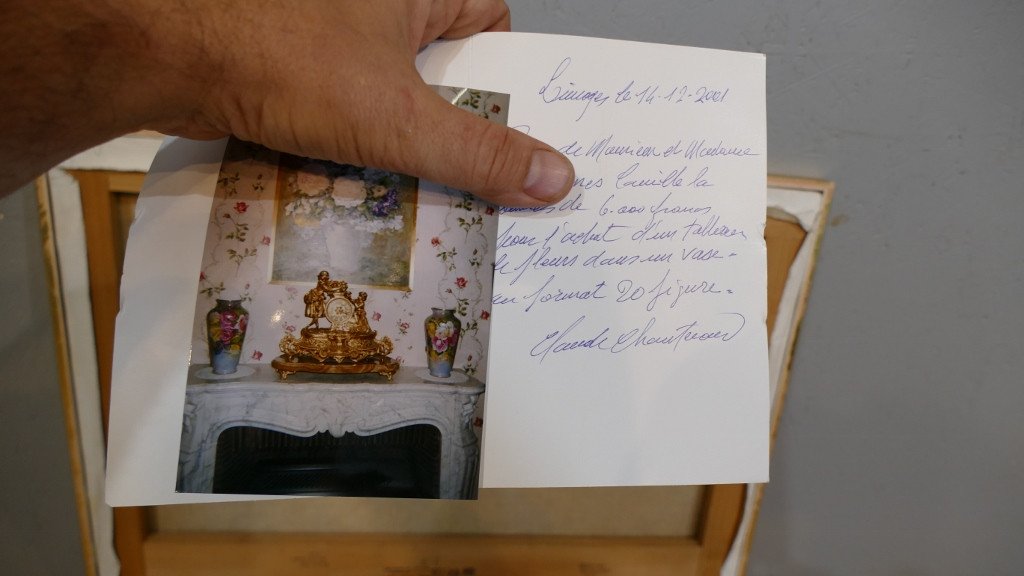 Limoges le 14-12-2001
de Monsieur et Madame
Camille la
de 6.000 francs
pour l'achat d'un tableau
de fleurs dans un vase.
au format 20 figure.
Claude